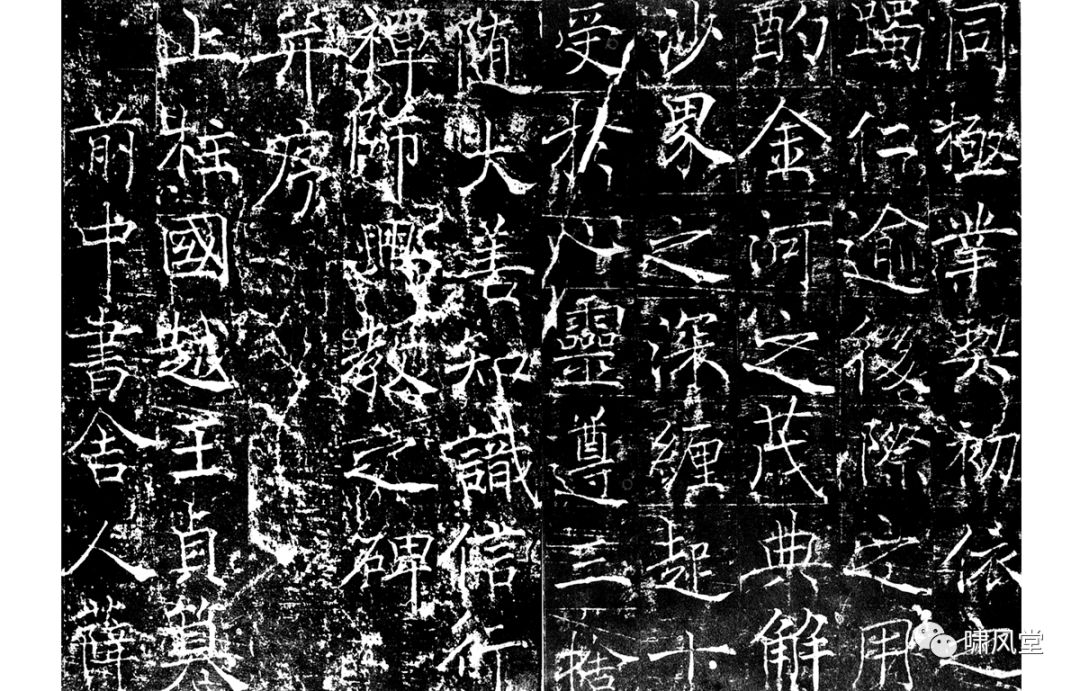 同極業契初依之
躅仁逾後際之用
酌金河之茂典解
沙界之深纏起十
受於八靈遵三
随大善知識信行
禪師興教之碑
并序
上柱國越王貞
前中書舍人薛
啸风堂